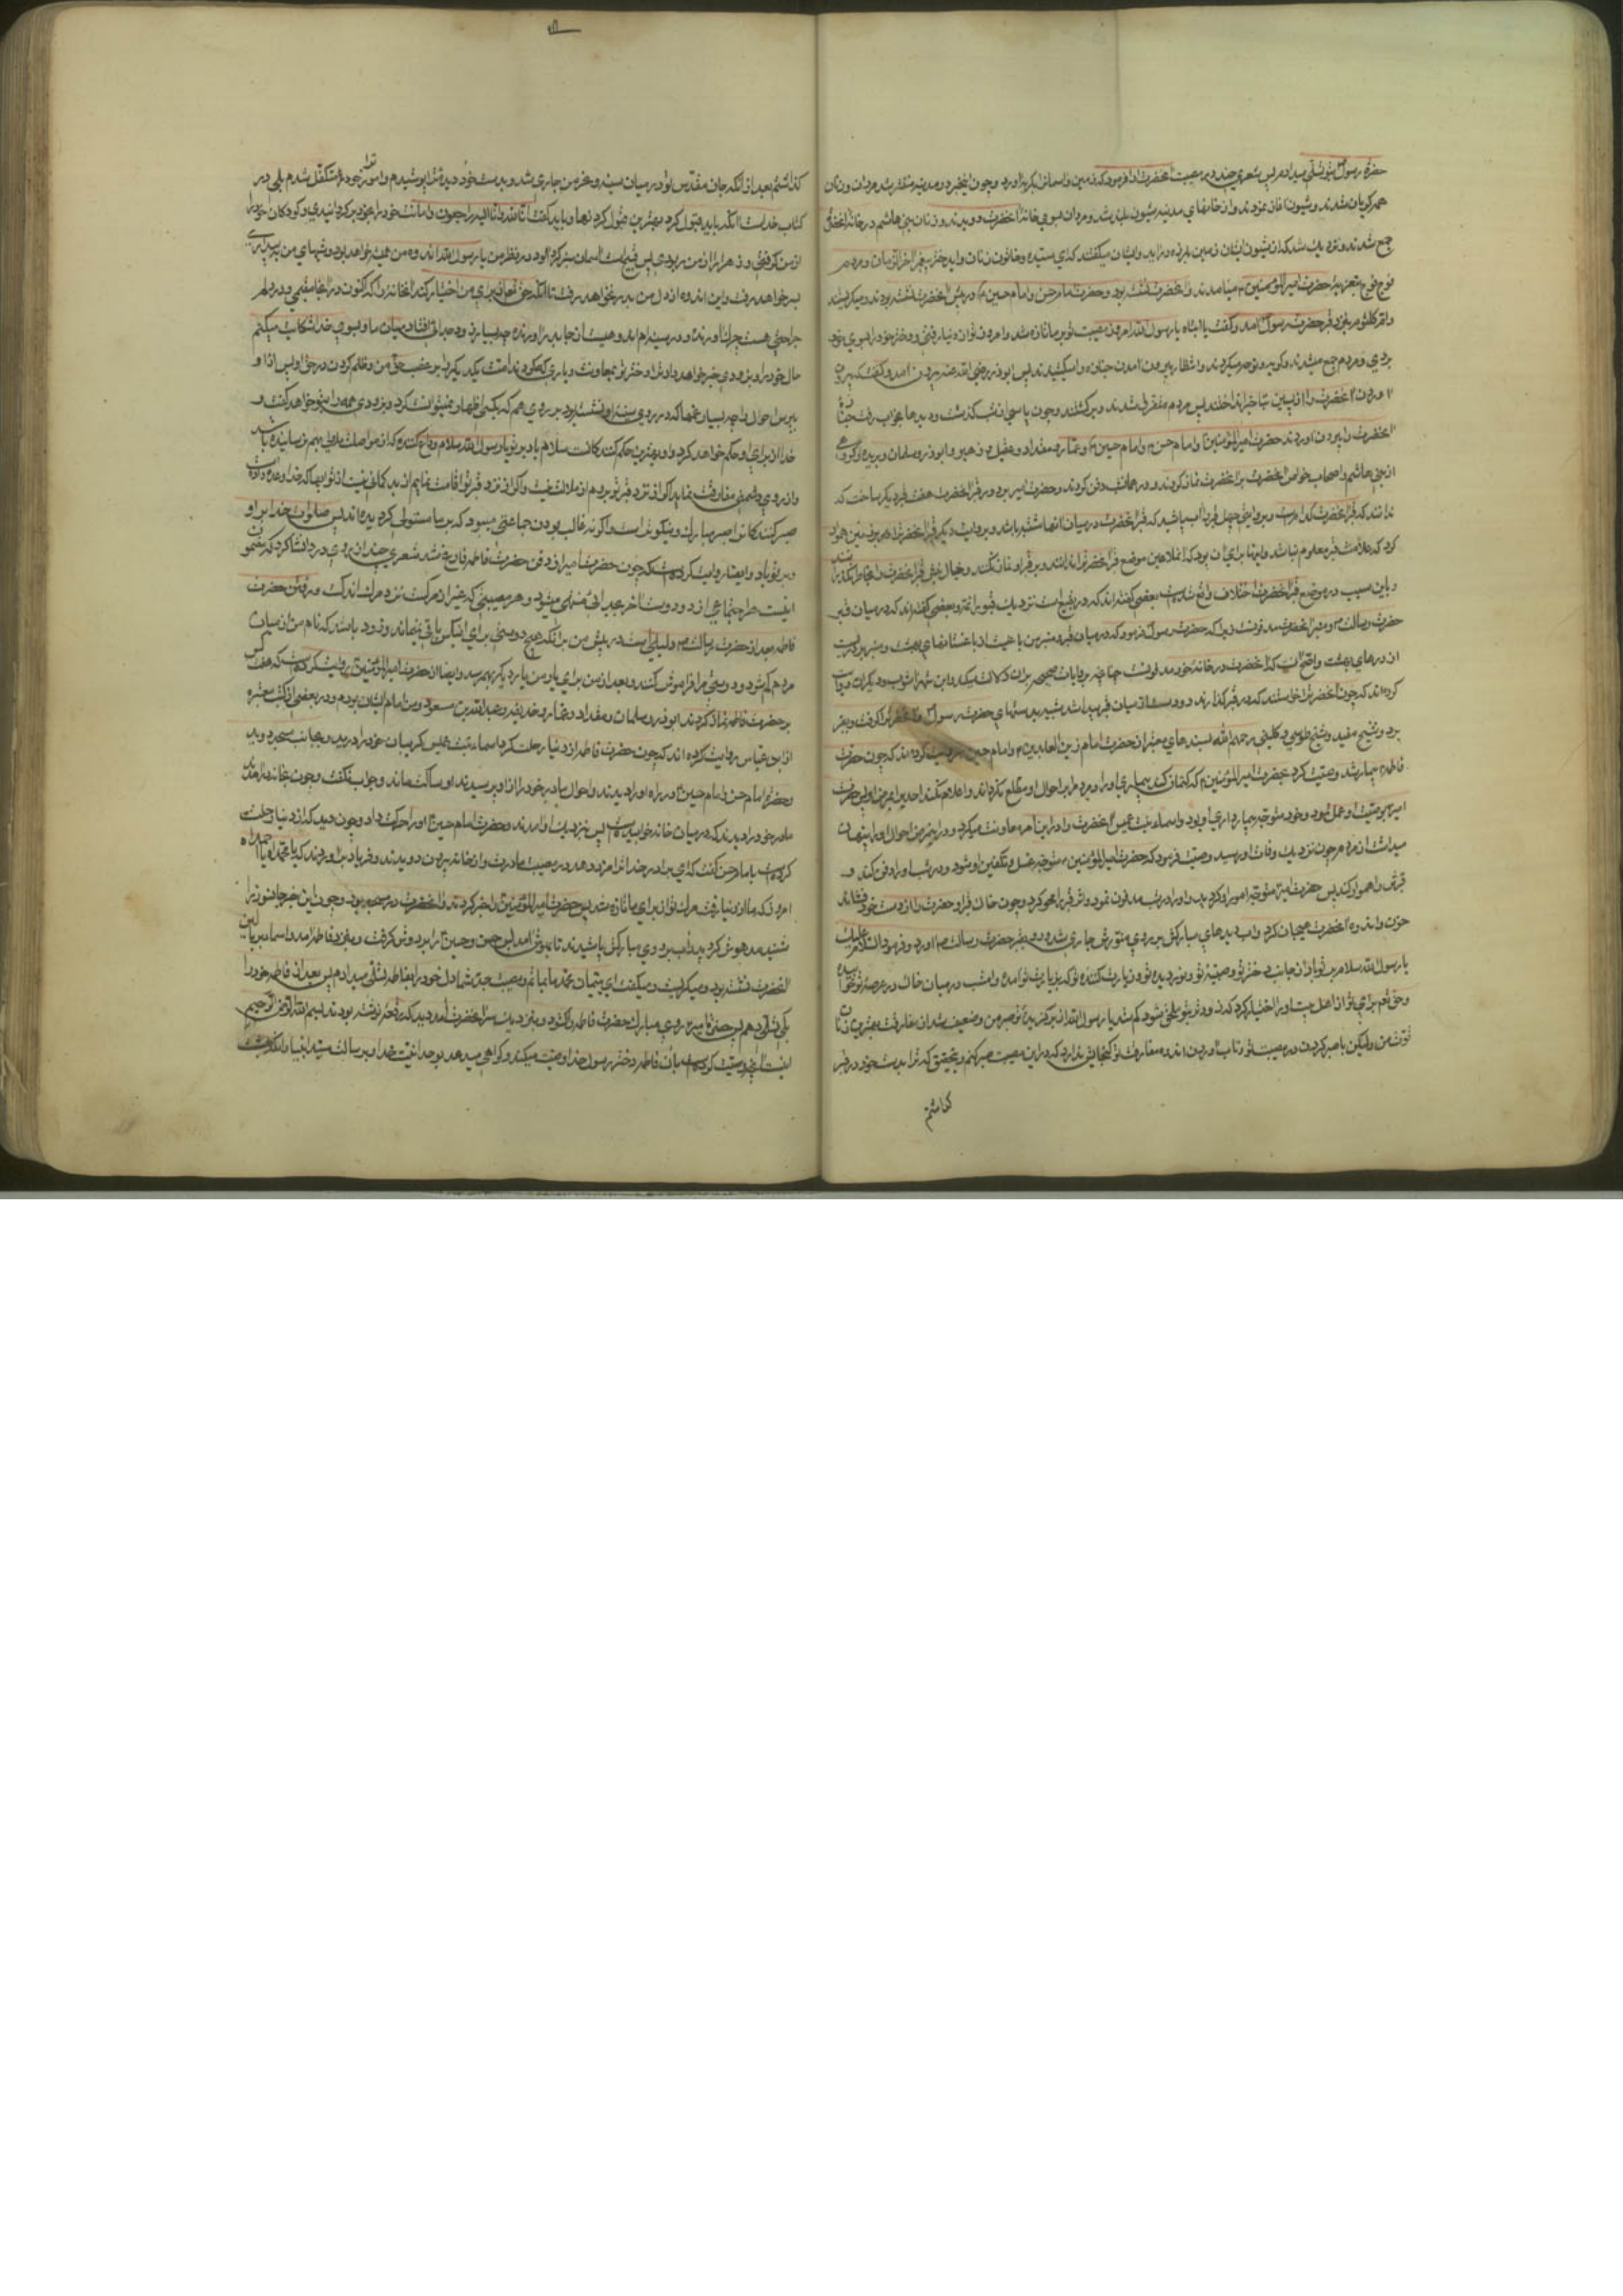 حضرة رسول بتو تسلّی میدادم پس شعری چند در مصیبت آنحضرت ادا فرمود که زمین و آسمان بگریه آورد و چون این خبر در مدینه منتشر شد مردان و زنان
همه گریان شدند و شیون آغاز نمودند و از خانهای مدینه شیون بلند شد و مردان بسوی خانهٔ آنحضرت دویدند و زنان بنی هاشم در خانهٔ آنحضرت
جمع شدند و نزدیک شد که از شیون ایشان زمین بلرزه درآید و ایشان میگفتند که ای سیده و خاتون زنان و ای دختر پیغمبر آخر الزمان و مردم
فوج فوج بتعزیهٔ حضرت امیر المؤمنین می‌آمدند و آنحضرت نشسته بود و حضرت امام حسن و امام حسین در پیش آنحضرت نشسته بودند و میگریستند
و ام کلثوم بنزد قبر حضرت رسول آمد و گفت یا ابتاه یا رسول الله امروز مصیبت تو بر ما تازه شد و امروز تو از دنیا رفتی و دختر خود را بسوی خود
بردی و مردم جمع شدند و گریه و نوحه میکردند و انتظار بیرون آمدن جنازه را میکشیدند پس ابوذر رضی الله عنه بیرون آمد و گفت که بیرون
آوردن آنحضرت را از پسین تأخیر انداختند پس مردم متفرق شدند و برگشتند و چون پاسی از شب گذشت و دیدها بخواب رفت جنازه
آنحضرت را بیرون آوردند حضرت امیر المؤمنین و امام حسن و امام حسین و عمار و مقداد و عقیل و زبیر و ابوذر و سلمان و بریده و گروهی
از بنی هاشم و اصحاب خواص آنحضرت بر آنحضرت نماز کردند و در همان شب دفن کردند و حضرت امیر بر دور قبر آنحضرت هفت قبر دیگر ساخت که
ندانند که قبر آنحضرت کدام است و بروایتی چهل قبر را آب پاشید که قبر آنحضرت در میان آنها مشتبه باشد و بروایت دیگر قبر آنحضرت را هم با زمین هموار
کرد که علامت قبر معلوم نباشد
و باین سبب در موضع قبر آنحضرت اختلاف واقع شد بعضی گفته‌اند که در بقیع است نزدیک قبور ائمه و بعضی گفته‌اند که در میان قبر
حضرت رسالت و منبر آنحضرت مدفونست زیرا که حضرت رسول فرمود که در میان قبر و منبر من باغیست از باغستانهای بهشت و منبر من بر دریست
از درهای بهشت
کرده‌اند که چون آنحضرت را خواستند که در قبر گذارند دو دست از میان قبر پیدا شد شبیه بدستهای حضرت رسول
برد و شیخ مفید و شیخ طوسی و کلینی رحمهم الله بسندهای معتبر از حضرت امام زین العابدین و امام حسین روایت کرده‌اند که چون حضرت
فاطمه بیمار شد وصیت کرد بحضرت امیر المؤمنین که کتمان کند بیماری او را و مردم را بر احوال او مطلع نگرداند و اعلام نکند احدیرا بمرض او پس حضرت
امیر بوصیت او عمل نمود و خود متوجه بیمارداری او بود و اسماء بنت عمیس آنحضرت را در این امر معاونت میکرد و در این مرض احوال او را پنهان
میداشت از مردم چون نزدیک وفات او رسید وصیت فرمود که حضرت امیر المؤمنین متوجه غسل و تکفین او شود و در شب او را دفن کند و
قبرش را هموار کند پس حضرت امیر متوجه امور او گردید و او را در شب مدفون نمود و اثر قبر او را محو کرد و چون خاک قبر او حضرت را از دست خود فشاند
حزن و اندوه آنحضرت هیجان کرد و آب دیدهای مبارکش بر روی منورش جاری شد و رو بقبر حضرت رسالت آورد و فرمود السلام علیک
یا رسول الله سلام بر تو باد از جانب دختر تو و حبیبهٔ تو و نور دیدهٔ تو و زیارت کنندهٔ تو که بزیارت تو آمده و امشب در میان خاک در عرصهٔ تو خوابیده
و حق تعالی برای او از اهل بیت او را اختیار کرد که زود بتو ملحق شود کم شد یا رسول الله از برگزیدهٔ تو صبر من و ضعیف شد از مفارقت بهترین زنان
قوت من ولیکن با صبر کردن در مصیبت تو و تاب آوردن اندوه مفارقت تو گنجایش ندارد که در این مصیبت صبر کنم و بتحقیق که ترا بدست خود در قبر
گذاشتم
گذاشتم بعد از آنکه جان مقدس تو در میان سینه و نحر من جاری شد و بدست خود دیدهٔ ترا پوشیدم و امور ترا خود متکفل شدم بلی در
کتاب خداست آنکه باید قبول کرد بهترین قبول کردنها و باید گفت انا لله و انا الیه راجعون و امانت خود را بخود برگردانیدی و گروگان خود را
از من گرفتی و زهرا را از من ربودی پس چه قبیح است آسمان سبز و گردآلود در نظر من یا رسول الله اندوه من همیشه خواهد بود و شبهای من به بیداری
بسر خواهد رفت و این اندوه از دل من بدر نخواهد رفت تا آنکه حق تعالی برای من اختیار کند آنخانه را که اکنون در آنجا مقیمی و در دلم
جراحتی هست چرک آورنده و در سینه‌ام اندوهیست از جا بدر آورنده چه بسیار زود جدائی افتاد میان ما و بسوی خدا شکایت میکنم
حال خود را و بزودی خبر خواهد داد ترا دختر تو
بپرس احوال را چه بسیار غمها که در سینهٔ او نشسته بود بر روی هم که بکسی اظهار نمیتوانست کرد و بزودی همه را بتو خواهد گفت و
خدا از برای او حکم خواهد کرد و او بهترین حکم کنندگانست سلام باد بر تو یا رسول الله سلام وداع کننده
و از روی دشمنی مفارقت ننماید اگر از نزد قبر تو بروم از ملالت نیست و اگر نزد قبر تو اقامت نمایم از بد گمانی نیست از ثوابها که خدا وعده داده است
صبر کنندگانرا صبر مبارک و نیکوتر است و اگر نه غالب بودن جماعتی میبود که بر ما مستولی گردیده‌اند پس صلوات خدا بر او
و بر تو باد و ایضا روایت کرده است که چون حضرت امیر از دفن حضرت فاطمه فارغ شد شعری چند از روی درد انشا کرد که مضمون
اینست هر اجتماعی از دو دوست آخر بجدائی منتهی میشود و هر مصیبتی که غیر از مرگست نزد مرگ اندکست و رفتن حضرت
فاطمه بعد از حضرت رسالت دلیلی است در پیش من بر آنکه هیچ دوستی برای کسی باقی نمیماند و زود باشد که نام من از میان
مردم گم شود و دوستی مرا فراموش کنند و بعد از من برای یار من یار دیگر بهم رسد و ایضا از حضرت امیر المؤمنین روایت کرده است که هفت کس
بر حضرت فاطمه نماز کردند ابوذر و سلمان و مقداد و عمار و حذیفه و عبدالله بن مسعود و من امام ایشان بودم و در بعضی از کتب معتبره
از ابن عباس روایت کرده‌اند که چون حضرت فاطمه از دنیا رحلت کرد اسماء بنت عمیس گریبان خود را درید و بجانب مسجد دوید
و حضرة امام حسن و امام حسین در راه او را دیدند و احوال مادر خود را از او پرسیدند او ساکت ماند و جواب نگفت و چون بخانه درآمدند
مادر خود را دیدند که در میان خانه خوابیده است پس نزدیک او آمدند و حضرت امام حسین او را حرکت داد و چون دید که از دنیا رحلت
کرده است با امام حسن گفت که ای برادر خدا ترا مزد دهد در مصیبت مادرت و از خانه بیرون دویدند و فریاد برآوردند که یا محمداه یا احمداه
امروز که مادر ما از دنیا رفت مرگ تو از برای ما تازه شد پس حضرت امیر المؤمنین را خبر کردند و آنحضرت در مسجد بود و چون این خبر جانسوز را
شنید مدهوش گردید و آب بر روی مبارکش پاشیدند تا بهوش آمد پس حسن و حسین را بر دوش گرفت و بنزد فاطمه آمد و اسما در بالین
آنحضرت نشسته بود و میگریست و میگفت ای یتیمان محمد ما بفاطمه بعد از مصیبت جد شما دل خود را بفاطمه تسلی میدادم پس بعد از فاطمه خود را
بکه تسلی دهم پس حضرت امیر روی مبارک حضرت فاطمه را گشود و نزدیک سر آنحضرت رقعه دید که در آن رقعه نوشته بودند بسم الله الرحمن الرحیم
اینست آنچه وصیت کرده است بآن فاطمه دختر رسول خدا وصیت میکند و گواهی میدهد بوحدانیت خدا و برسالت سید انبیا و آنکه بهشت